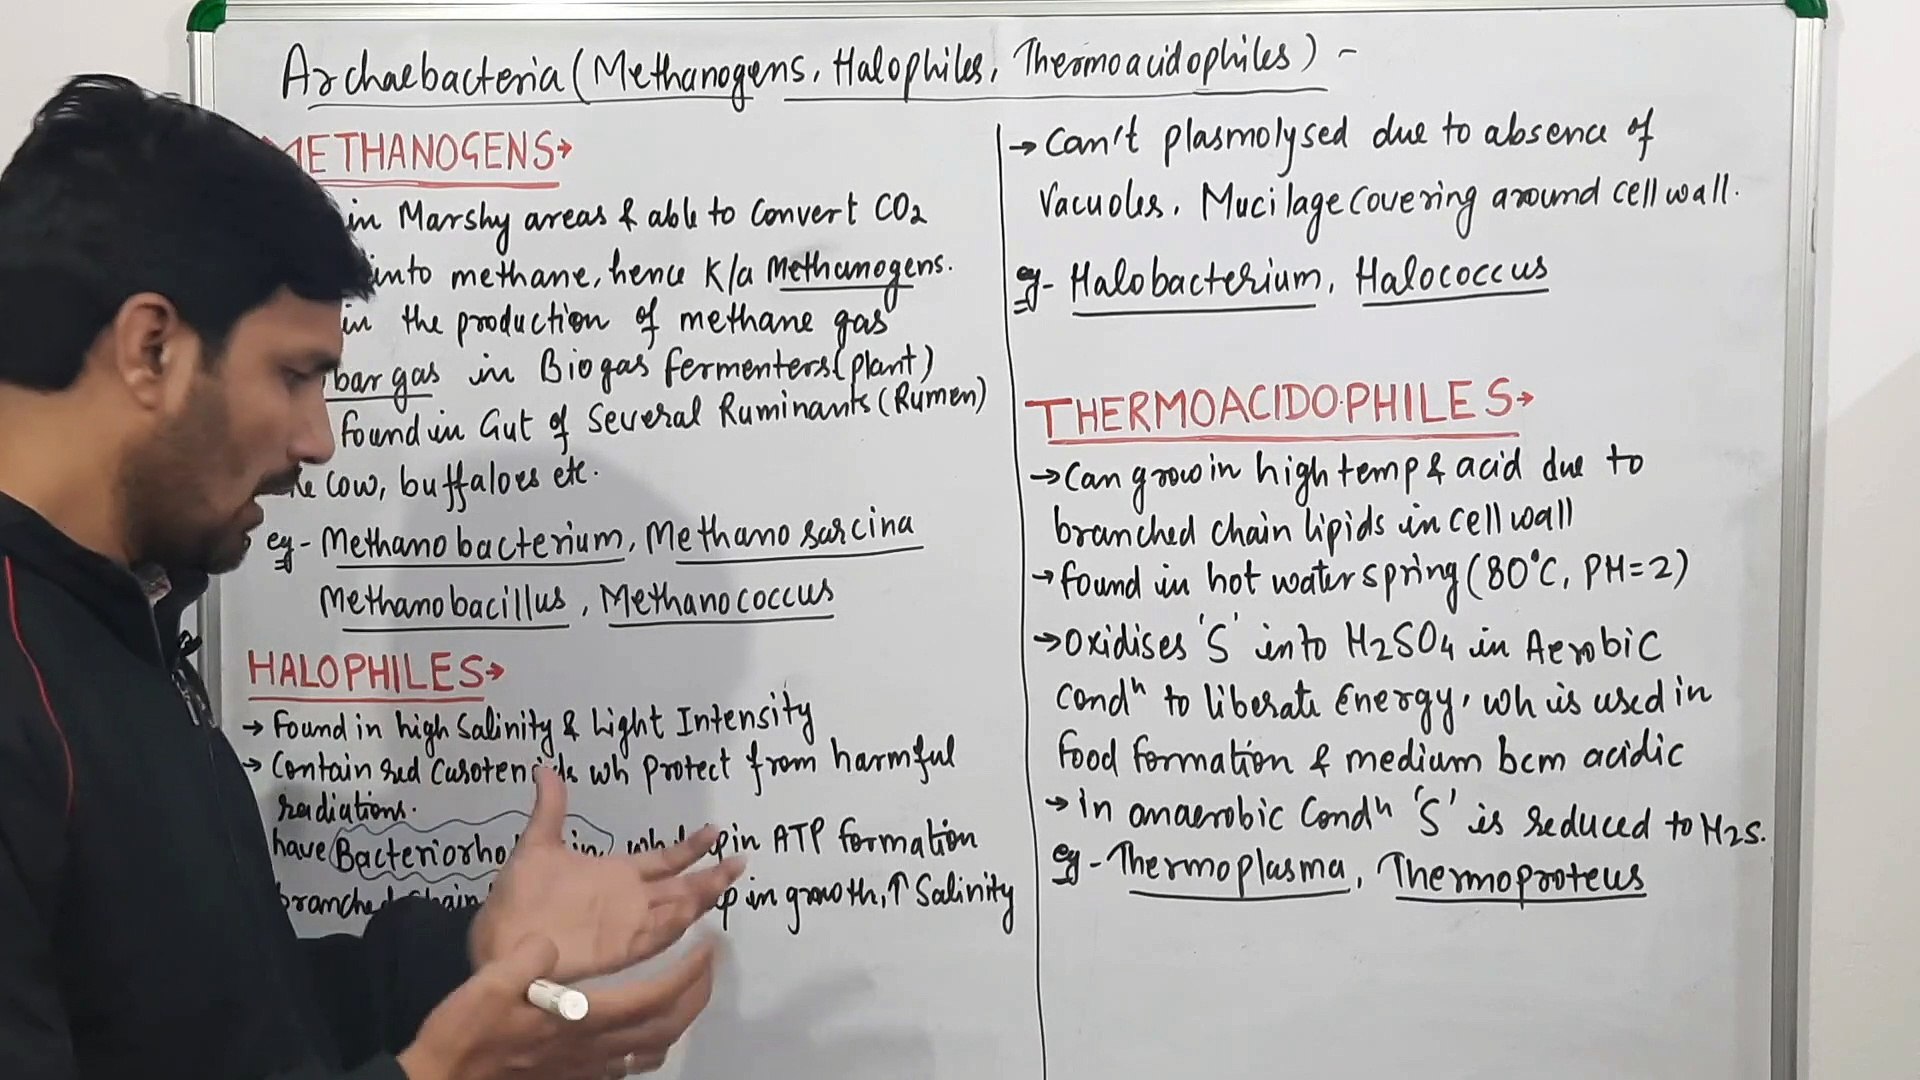 Archaebacteria (Methanogens, Halophiles, Thermoacidophiles) -
METHANOGENS→
in Marshy areas & able to Convert CO2
into methane, hence K/a Methanogens.
in the production of methane gas
bar gas in Biogas fermenters (plant)
found in Gut of Several Ruminants (Rumen)
Cow, buffaloes etc.
eg - Methanobacterium, Methanosarcina
Methanobacillus, Methanococcus
HALOPHILES→
→ Found in high Salinity & Light Intensity
→ Contain red Carotenoids wh protect from harmful
radiations.
have in ATP formation
in growth, ↑ Salinity
→ Can't plasmolysed due to absence of
Vacuoles. Mucilage covering around cell wall.
eg - Halobacterium, Halococcus
THERMOACIDOPHILES→
→ Can grow in high temp & acid due to
branched chain lipids in cell wall
→ found in hot water spring (80°C, PH=2)
→ Oxidises 'S' into H2SO4 in Aerobic
Condn to liberate Energy, wh is used in
Food formation & medium bcm acidic
→ in anaerobic Condn 'S' is reduced to H2S.
eg - Thermoplasma, Thermoproteus